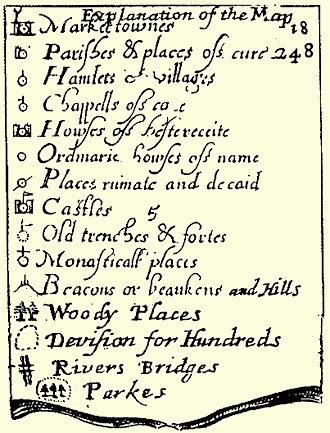 Explanation of the Map
Market townes 18
Parishes & places off cure 248
Hamlets or Villages
Chappells off ea e
Howses off
Ordinarie howses off name
Places ruinate and decaid
Castles 5
Old trenches & fortes
Monasticall places
Beacons or beaukens and Hills
Woody Places
Devision for Hundreds
Rivers Bridges
Parkes